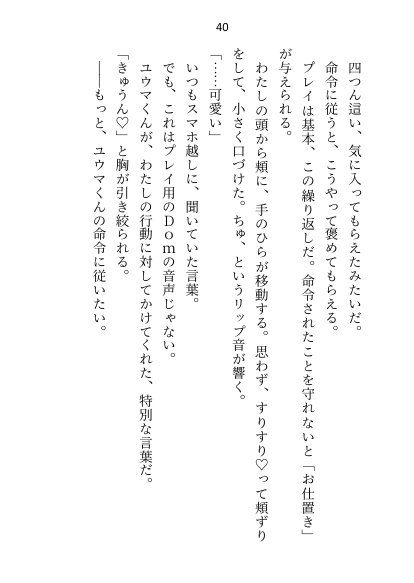 40
四つん這い、気に入ってもらえたみたいだ。
命令に従うと、こうやって褒めてもらえる。
プレイは基本、この繰り返しだ。命令されたことを守れないと「お仕置き」
が与えられる。
わたしの頭から頬に、手のひらが移動する。思わず、すりすり♡って頬ずり
をして、小さく口づけた。ちゅ、というリップ音が響く。
「……可愛い」
いつもスマホ越しに、聞いていた言葉。
でも、これはプレイ用のＤｏｍの音声じゃない。
ユウマくんが、わたしの行動に対してかけてくれた、特別な言葉だ。
「きゅうん♡」と胸が引き絞られる。
――もっと、ユウマくんの命令に従いたい。